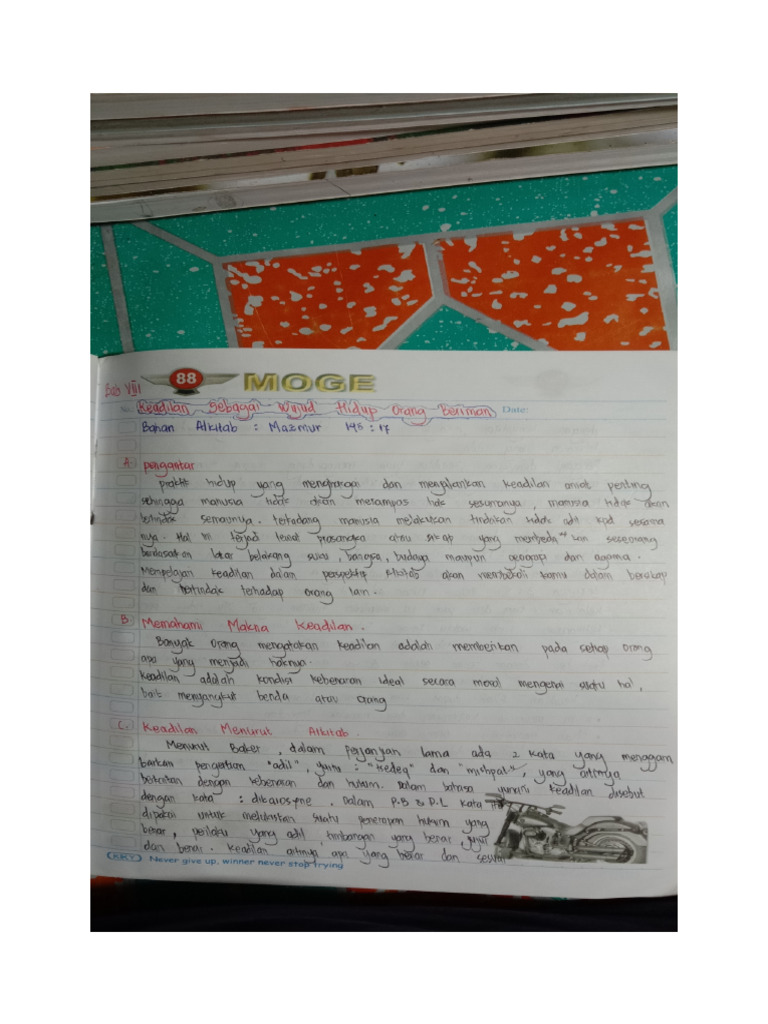 Bab VIII
88 MOGE
No. Keadilan Sebagai Wujud Hidup Orang Beriman Date:
Bahan Alkitab : Mazmur 145 : 17
A. pengantar
praktik hidup yang menghargai dan menjalankan keadilan amat penting
sehingga manusia tidak akan merampas hak sesamanya, manusia tidak akan
bertindak semaunya. terkadang manusia melakukan tindakan tidak adil kpd sesama
nya. Hal ini terjadi lewat prasangka atau sikap yang membeda"kan seseorang
berdasarkan latar belakang suku, bangsa, budaya maupun geografi dan agama.
Mempelajari keadilan dalam perspektif Alkitab akan membekali kamu dalam bersikap
dan bertindak terhadap orang lain.
B Memahami Makna Keadilan.
Banyak orang mengatakan keadilan adalah memberikan pada setiap orang
apa yang menjadi haknya.
keadilan adalah kondisi kebenaran ideal secara moral mengenai suatu hal,
baik menyangkut benda atau orang
C. Keadilan Menurut Alkitab.
Menurut Baker, dalam perjanjian lama ada 2 kata yang menggam
barkan pengertian "adil", yaitu : "tsedeq" dan "mishpat", yang artinya
berkaitan dengan kebenaran dan hukum. Dalam bahasa yunani keadilan disebut
dengan kata : dikaiosyne, Dalam P.B & P.L kata
dipakai untuk melukiskan suatu penerapan hukum yang
benar, perilaku yang adil, timbangan yang benar, jujur
dan benar. Keadilan artinya apa yang benar dan sesuai
KKY Never give up, winner never stop trying